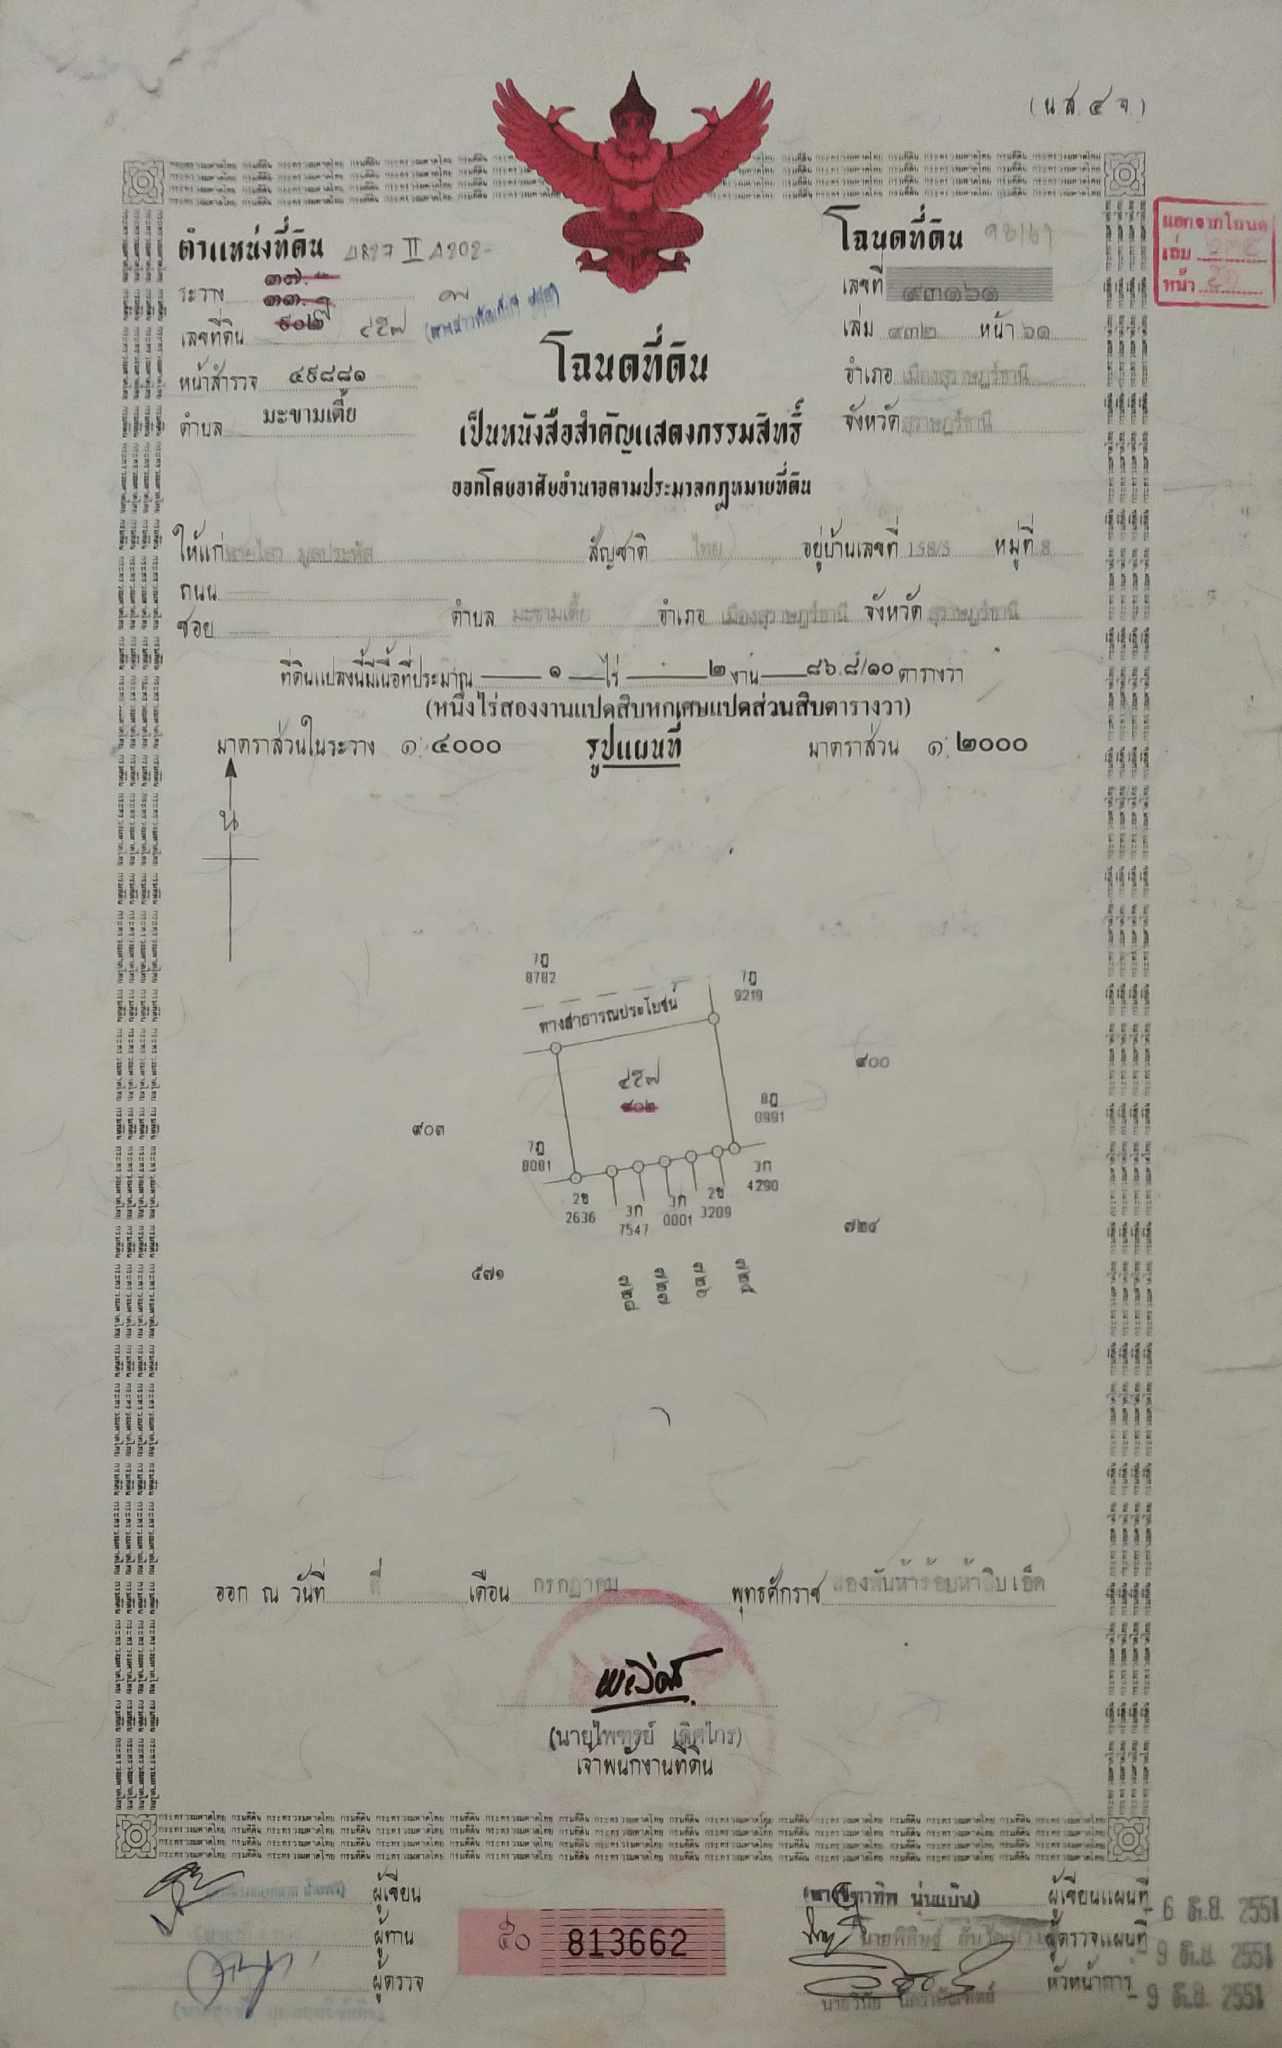 (น.ส. ๔ จ.)
ตำแหน่งที่ดิน 4827 II 4202-
ระวาง
เลขที่ดิน ๙๐๒ ๔๕๗
หน้าสำรวจ ๔๙๘๘๑
ตำบล มะขามเตี้ย
โฉนดที่ดิน
เลขที่ ๙๓๑๖๑
เล่ม ๙๓๒ หน้า ๖๑
อำเภอ เมืองสุราษฎร์ธานี
จังหวัด สุราษฎร์ธานี
แยกจากโฉนด
เล่ม
หน้า
โฉนดที่ดิน
เป็นหนังสือสำคัญแสดงกรรมสิทธิ์
ออกโดยอาศัยอำนาจตามประมวลกฎหมายที่ดิน
ให้แก่ มูลประหัส สัญชาติ ไทย อยู่บ้านเลขที่ 158/5 หมู่ที่ 8
ถนน
ซอย ตำบล มะขามเตี้ย อำเภอ เมืองสุราษฎร์ธานี จังหวัด สุราษฎร์ธานี
ที่ดินแปลงนี้มีเนื้อที่ประมาณ ๑ ไร่ ๒ งาน ๘๖.๘/๑๐ ตารางวา
(หนึ่งไร่สองงานแปดสิบหกเศษแปดส่วนสิบตารางวา)
มาตราส่วนในระวาง ๑:๔๐๐๐ รูปแผนที่ มาตราส่วน ๑:๒๐๐๐
น
7ฎ 8782
7ฎ 9219
ทางสาธารณประโยชน์
๙๐๐
๔๕๗
๙๐๒
8ฎ 0991
๙๐๓
7ฎ 8081
2ข 2636
3ก 7547
3ก 0001
2ข 3209
3ก 4290
๗๒๔
๕๗๑
๗๒๘ ๗๒๗ ๗๒๖ ๗๒๕
ออก ณ วันที่ สี่ เดือน กรกฎาคม พุทธศักราช สองพันห้าร้อยห้าสิบเอ็ด
(นายไพฑูรย์ เลิศไกร)
เจ้าพนักงานที่ดิน
ผู้เขียน
ผู้ทาน
ผู้ตรวจ
๕๐ 813662
นุ่นแป้น) ผู้เขียนแผนที่ - 6 มิ.ย. 2551
ผู้ตรวจแผนที่ - 9 มิ.ย. 2551
หัวหน้าการ - 9 มิ.ย. 2551